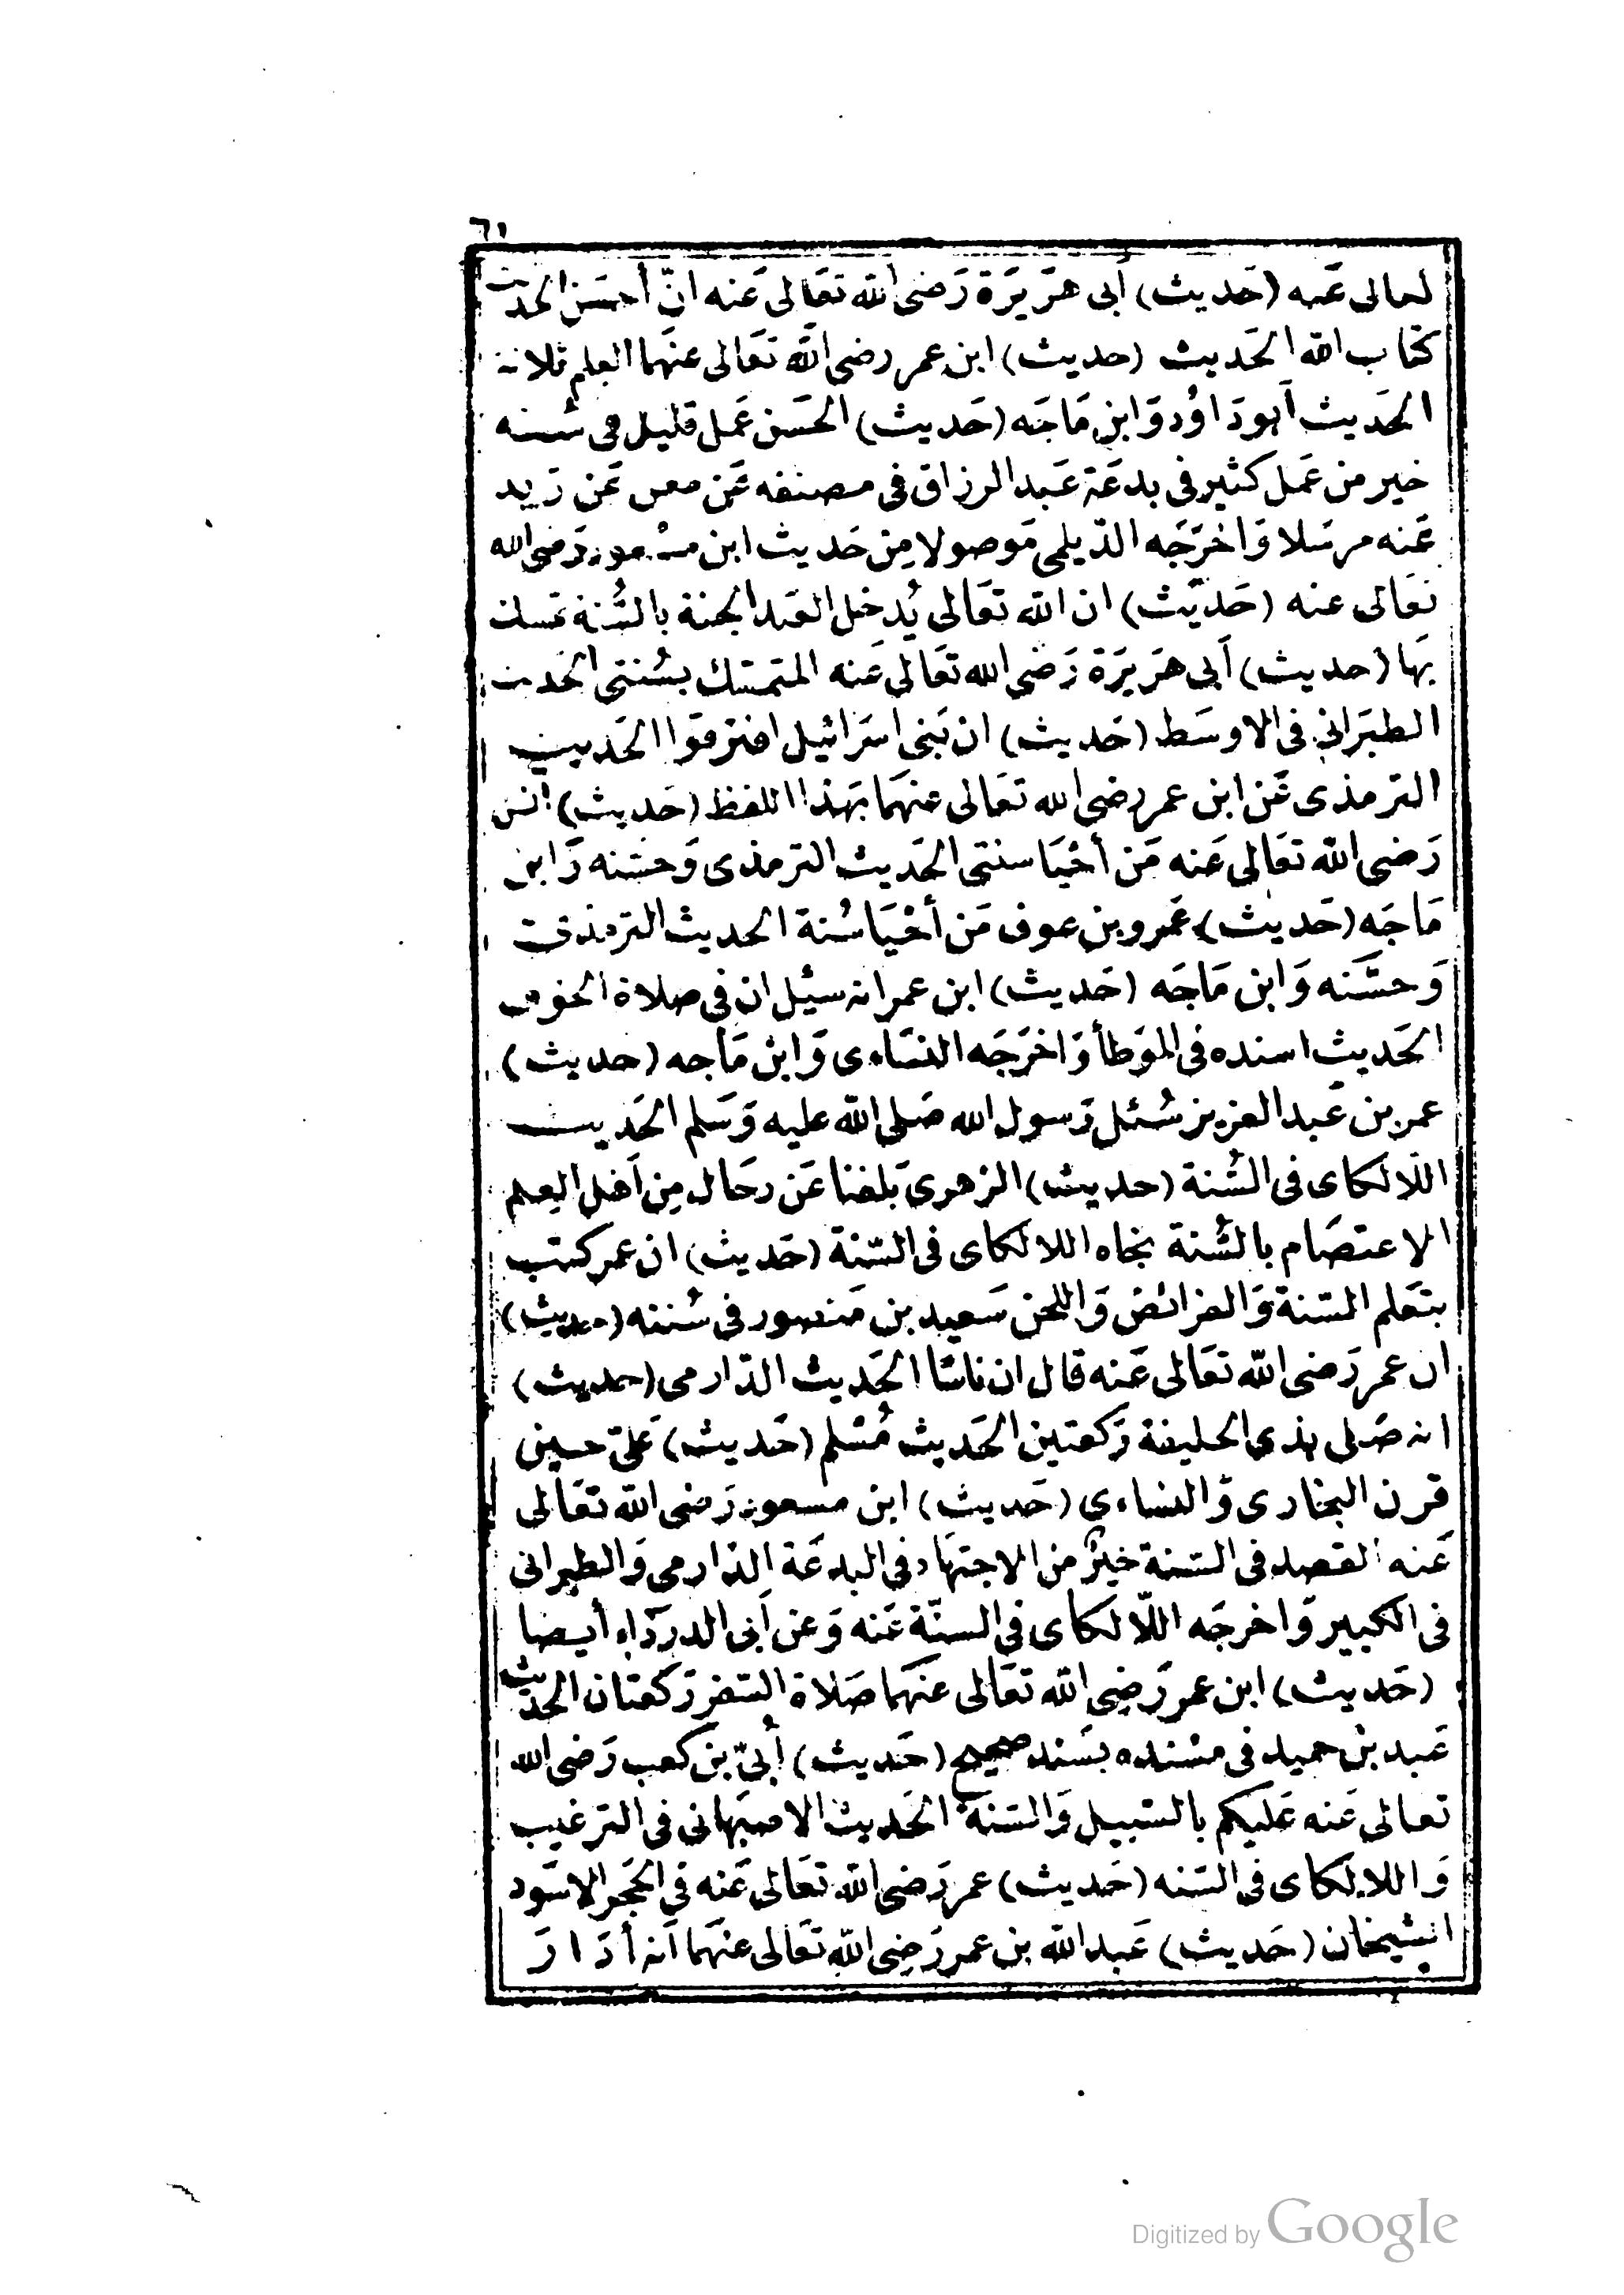 ٦١
تعالى عَنه (حَديث) أبى هرَيرَة رَضى الله تعَالى عَنه انّ أحسَن الحديث
كتاب الله الحَديث (حديث) ابن عمر رضى الله تعَالى عنهَما العلم ثلاثة
الحَديث أبودَاوُد وَابن مَاجَه (حَديث) الحَسَن عَمل قليل فى سُنه
خير من عَمل كثير فى بدعَة عَبد الرزاق فى مصنفه عَن معمر عَن زيد
عَنه مرسَلا وَاخرَجَه الدّيلمى مَوصولا مِن حَديث ابن مسعود رَضى الله
تعَالى عنه (حَديث) ان الله تعَالى يُدخل العَبد الجنة بالسُّنة تمسك
بَها (حديث) أبى هرَيرَة رَضى الله تعَالى عَنه المتمسّك بسُنتى الحَديث
الطبَرانى فى الاوسَط (حَديث) ان بَنى اسرَائيل افترقوا الحَديث
الترمذى عَن ابن عمر رضى الله تعَالى عنهَما بهَذا اللفظ (حَديث) أنس
رَضى الله تعَالى عَنه مَن أحْيَا سنتى الحَديث الترمذى وَحسّنه وَابن
مَاجَه (حَديث) عَمرو بن عوف مَن أحْيَا سُنة الحديث الترمذى
وَحسَّنه وَابن مَاجَه (حَديث) ابن عمر انه سئل ان فى صلاة الخوف
الحَديث اسنده فى المَوَطأ وَاخرَجَه النسَاءى وَابن مَاجه (حديث)
عمر بن عَبد العزيز سُئل رَسول الله صَلى الله عليه وَسَلم الحَديث
اللّالكاى فى السُّنة (حديث) الزهرى بَلغنا عَن رجَال مِن أهل العِلم
الاعتصَام بالسُّنة نجاه اللالكاى فى السّنة (حَديث) ان عمر كتب
بتعَلم السّنة وَالفرائض وَاللحن سَعيد بن مَنصور فى سُننه (حديث)
ان عمر رَضى الله تعَالى عَنه قال ان ناسًا الحَديث الدّارمى (حديث)
انه صَلى بذى الحليفة رَكعتين الحَديث مُسْلم (حَديث) عَلىّ حسين
قرن البخارى وَالنساءى (حَديث) ابن مسعود رَضى الله تعَالى
عَنه القصد فى السّنة خيرٌ من الاجتهَاد فى البدعَة الدّارمى وَالطبرانى
فى الكبير وَاخرجَه اللّالكاى فى السنّة عَنه وَعن أبى الدردَاء أيضا
(حَديث) ابن عمر رَضِى الله تعَالى عَنهَما صَلاة السّفر رَكعتان الحديث
عَبد بن حميد فى مسْنده بسَند صحيح (حَديث) أُبىّ بن كعب رَضى الله
تعالى عَنه عَليكم بالسّبيل وَالسّنة الحَديث الاصبهَانى فى الترغيب
وَاللالكاى فى السّنه (حَديث) عمر رَضى الله تعَالى عَنه فى الحَجر الاسَود
الشيخان (حَديث) عَبد الله بن عمر رَضِى الله تعَالى عنهَما أنه أدَارَ
Digitized by Google